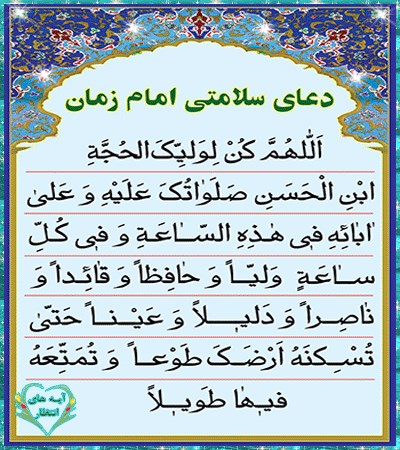 دعای سلامتی امام زمان
اَللّٰهُمَّ کُنْ لِوَلِیِّکَ الحُجَّةِ
ابْنِ الْحَسَنِ صَلَوٰاتُکَ عَلَیْهِ وَ عَلیٰ
اٰبٰائِهِ فی هٰذِهِ السّٰاعَةِ وَ فی کُلِّ
سٰاعَةٍ وَلیّاً وَ حٰافِظاً وَ قٰائِداً وَ
نٰاصِراً وَ دَلیلاً وَ عَیْناً حَتّیٰ
تُسْکِنَهُ اَرْضَکَ طَوْعاً وَ تُمَتِّعَهُ
فیهٰا طَویلاً
آیه های
انتظار